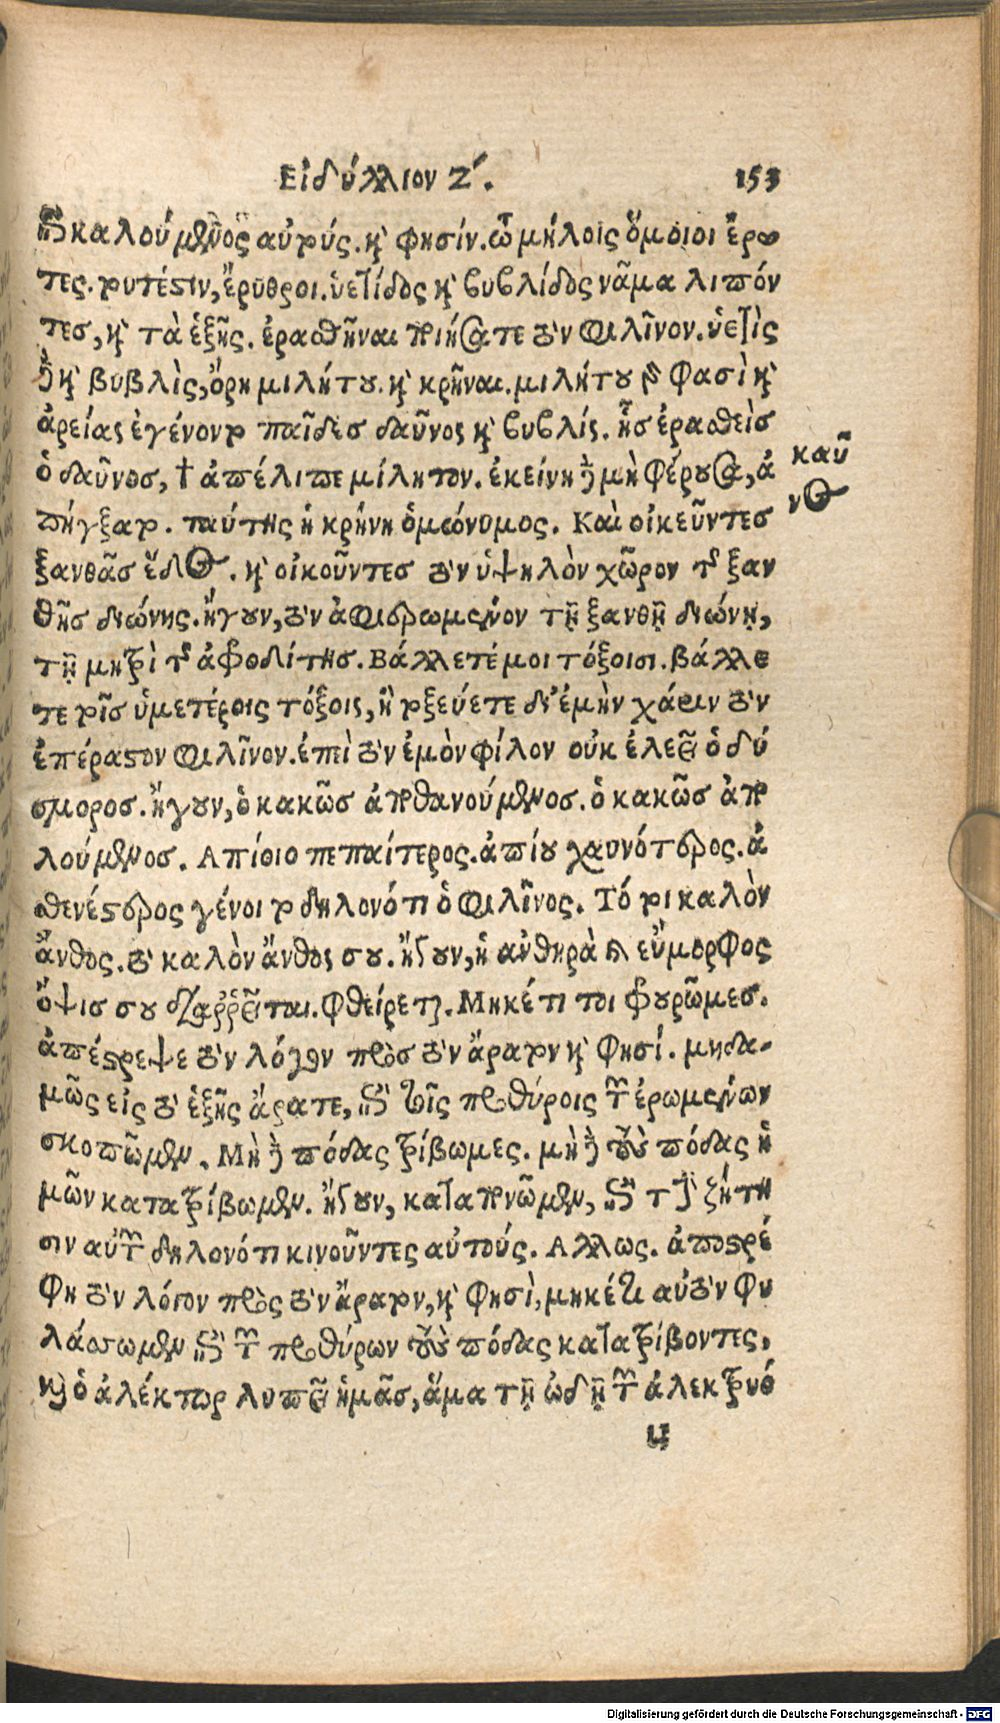 Εἰδύλλιον Ζ΄. 153
ἐπικαλούμενος αὐτούς. καὶ φησίν. ὦ μήλοις ὅμοιοι ἔρω
τες. τουτέστιν, ἔρυθροι. ὑετίδος καὶ βυβλίδος νᾶμα λιπόν
τες, καὶ τὰ ἑξῆς. ἐρασθῆναι ποιήσατε τὸν φιλῖνον. ὑετὶς
δὲ καὶ βυβλὶς, ὄρη μιλήτου. καὶ κρῆναι. μιλήτου φασὶ καὶ
ἀρείας ἐγένοντο παῖδες δαῦνος καὶ βυβλίς. ἧς ἐρασθεὶς
ὁ δαῦνος, τὴν ἀπέλιπε μίλητον. ἐκείνη δὲ μὴ φέρουσα, ἀ
καῦ
πήγξατο. ταύτης ἡ κρήνη ὁμώνυμος. Καὶ οἰκεῦντες
νος
ξανθᾶς ἕδος. καὶ οἰκοῦντες τὸν ὑψηλὸν χῶρον τῆς ξαν
θῆς διώνης. ἤγουν, τὸν ἀφιερωμένον τῇ ξανθῇ διώνῃ,
τῇ μητρὶ τῆς ἀφροδίτης. Βάλλετέ μοι τόξοισι. βάλλε
τε τοῖς ὑμετέροις τόξοις, ἢ τοξεύετε δι' ἐμὴν χάριν τὸν
ἐπέραστον φιλῖνον. ἐπεὶ τὸν ἐμὸν φίλον οὐκ ἐλεεῖ ὁ δύ
σμορος. ἤγουν, ὁ κακῶς ἀποθανούμενος. ὁ κακῶς ἀπο
λούμενος. Απίοιο πεπαίτερος. ἀπίου χαυνότερος. ἀ
σθενέστερος γένοιτο δηλονότι ὁ φιλῖνος. Τό τοι καλὸν
ἄνθος. τὸ καλὸν ἄνθος σου. ἤγουν, ἡ ἀνθηρὰ καὶ εὔμορφος
ὄψις σου διαῤῥεῖται. φθείρεται. Μηκέτι τοι φρουρῶμες.
ἀπέστρεψε τὸν λόγον πρὸς τὸν ἄρατον καὶ φησί. μηδα-
μῶς εἰς τὸ ἑξῆς ἄρατε, ἐπὶ τοῖς προθύροις τῶν ἐρωμένων
σκοπῶμεν. Μὴ δὲ πόδας τρίβωμες. μὴ δὲ τοὺς πόδας ἡ
μῶν κατατρίβωμεν. ἤγουν, καταπονῶμεν, ἐπὶ τῇ ζήτη
σιν αὐτῶν δηλονότι κινοῦντες αὐτούς. Αλλως. ἀποστρέ
φη τὸν λόγον πρὸς τὸν ἄρατον, καὶ φησὶ, μηκέτι αὐτὸν φυ
λάσσωμεν ἐπὶ τῶν προθύρων τοὺς πόδας κατατρίβοντες,
καὶ ὁ ἀλέκτωρ λυπεῖ ἡμᾶς, ἅμα τῇ ᾠδῇ τῶν ἀλεκτρυό
υ
Digitalisierung gefördert durch die Deutsche Forschungsgemeinschaft - DFG